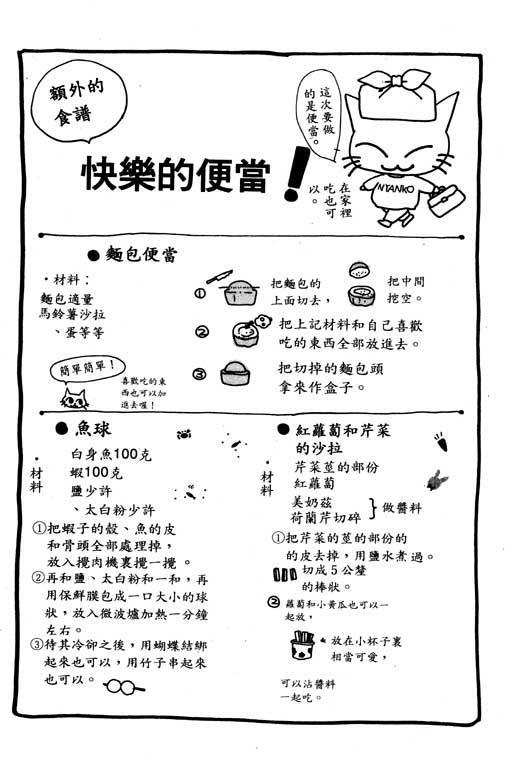 額外的
食譜
快樂的便當！
這次要做
的是便當。
NYANKO
在家裡
吃也可
以。
●麵包便當
・材料：
麵包適量
馬鈴薯沙拉
、蛋等等
簡單簡單！
喜歡吃的東
西也可以加
進去喔！
①
把麵包的
上面切去，
把中間
挖空。
②
把上記材料和自己喜歡
吃的東西全部放進去。
③
把切掉的麵包頭
拿來作盒子。
●魚球
・材料
白身魚100克
蝦100克
鹽少許
、太白粉少許
①把蝦子的殼、魚的皮
和骨頭全部處理掉，
放入攪肉機裏攪一攪。
②再和鹽、太白粉和一和，再
用保鮮膜包成一口大小的球
狀，放入微波爐加熱一分鐘
左右。
③待其冷卻之後，用蝴蝶結綁
起來也可以，用竹子串起來
也可以。
●紅蘿蔔和芹菜
的沙拉
・材料
芹菜莖的部份
紅蘿蔔
美奶茲
荷蘭芹切碎
}做醬料
①把芹菜的莖的部份的
的皮去掉，用鹽水煮過。
切成5公釐
的棒狀。
② 蘿蔔和小黃瓜也可以一
起放，
放在小杯子裏
相當可愛，
可以沾醬料
一起吃。